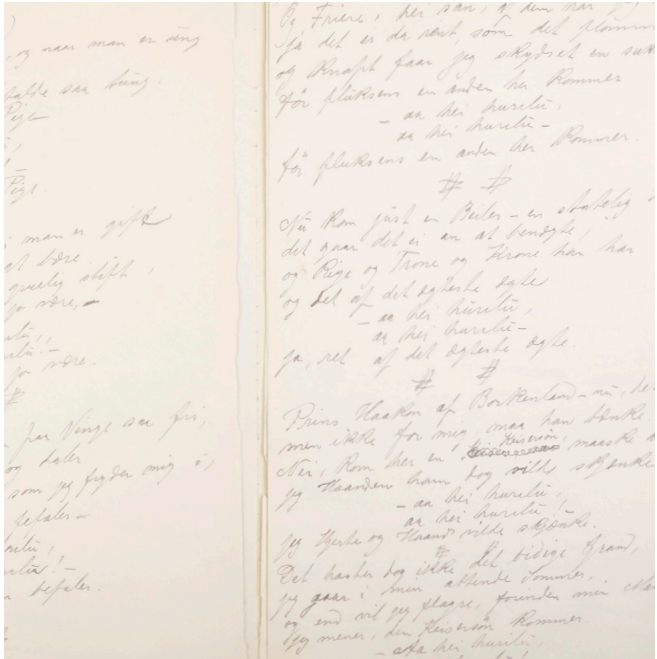 og naar man er ung
saa tung
Pige
Pige.
man er gift
at være
gruelig stift,
jo være, –
jo være.
#
par Vinge saa fri,
og daler
som jeg fryder mig i,
befaler –
befaler.
Og Friere, hei san, af dem har jeg
ja det er da rent, som det
og knapt faar jeg skydset en
før pluksens en anden her kommer
– aa hei hurilu,
aa hei hurilu –
før pluksens en anden her kommer.
# #
Nu kom just en Beiler – en statelig
det gaar det ei an at benægte,
og Rige og Trone og Krone han har
og det af det ægteste ægte
– aa hei hurilu,
aa hei hurilu –
ja, ret af det ægteste ægte.
# #
Prins Haakon af Borkenland – nu, det
men ikke for mig, maa han tænke.
Nei, kom her en Keisersøn, maaske
jeg Haanden ham dog vilde skjænke
– aa hei hurilu,
aa hei hurilu! –
jeg Hjerte og Haand vilde skjænke.
#
Det haster dog ikke det
jeg gaar i min attende Sommer,
og end vil jeg flagre, forinden min
jeg mener, den Keisersøn kommer
– aa hei hurilu,